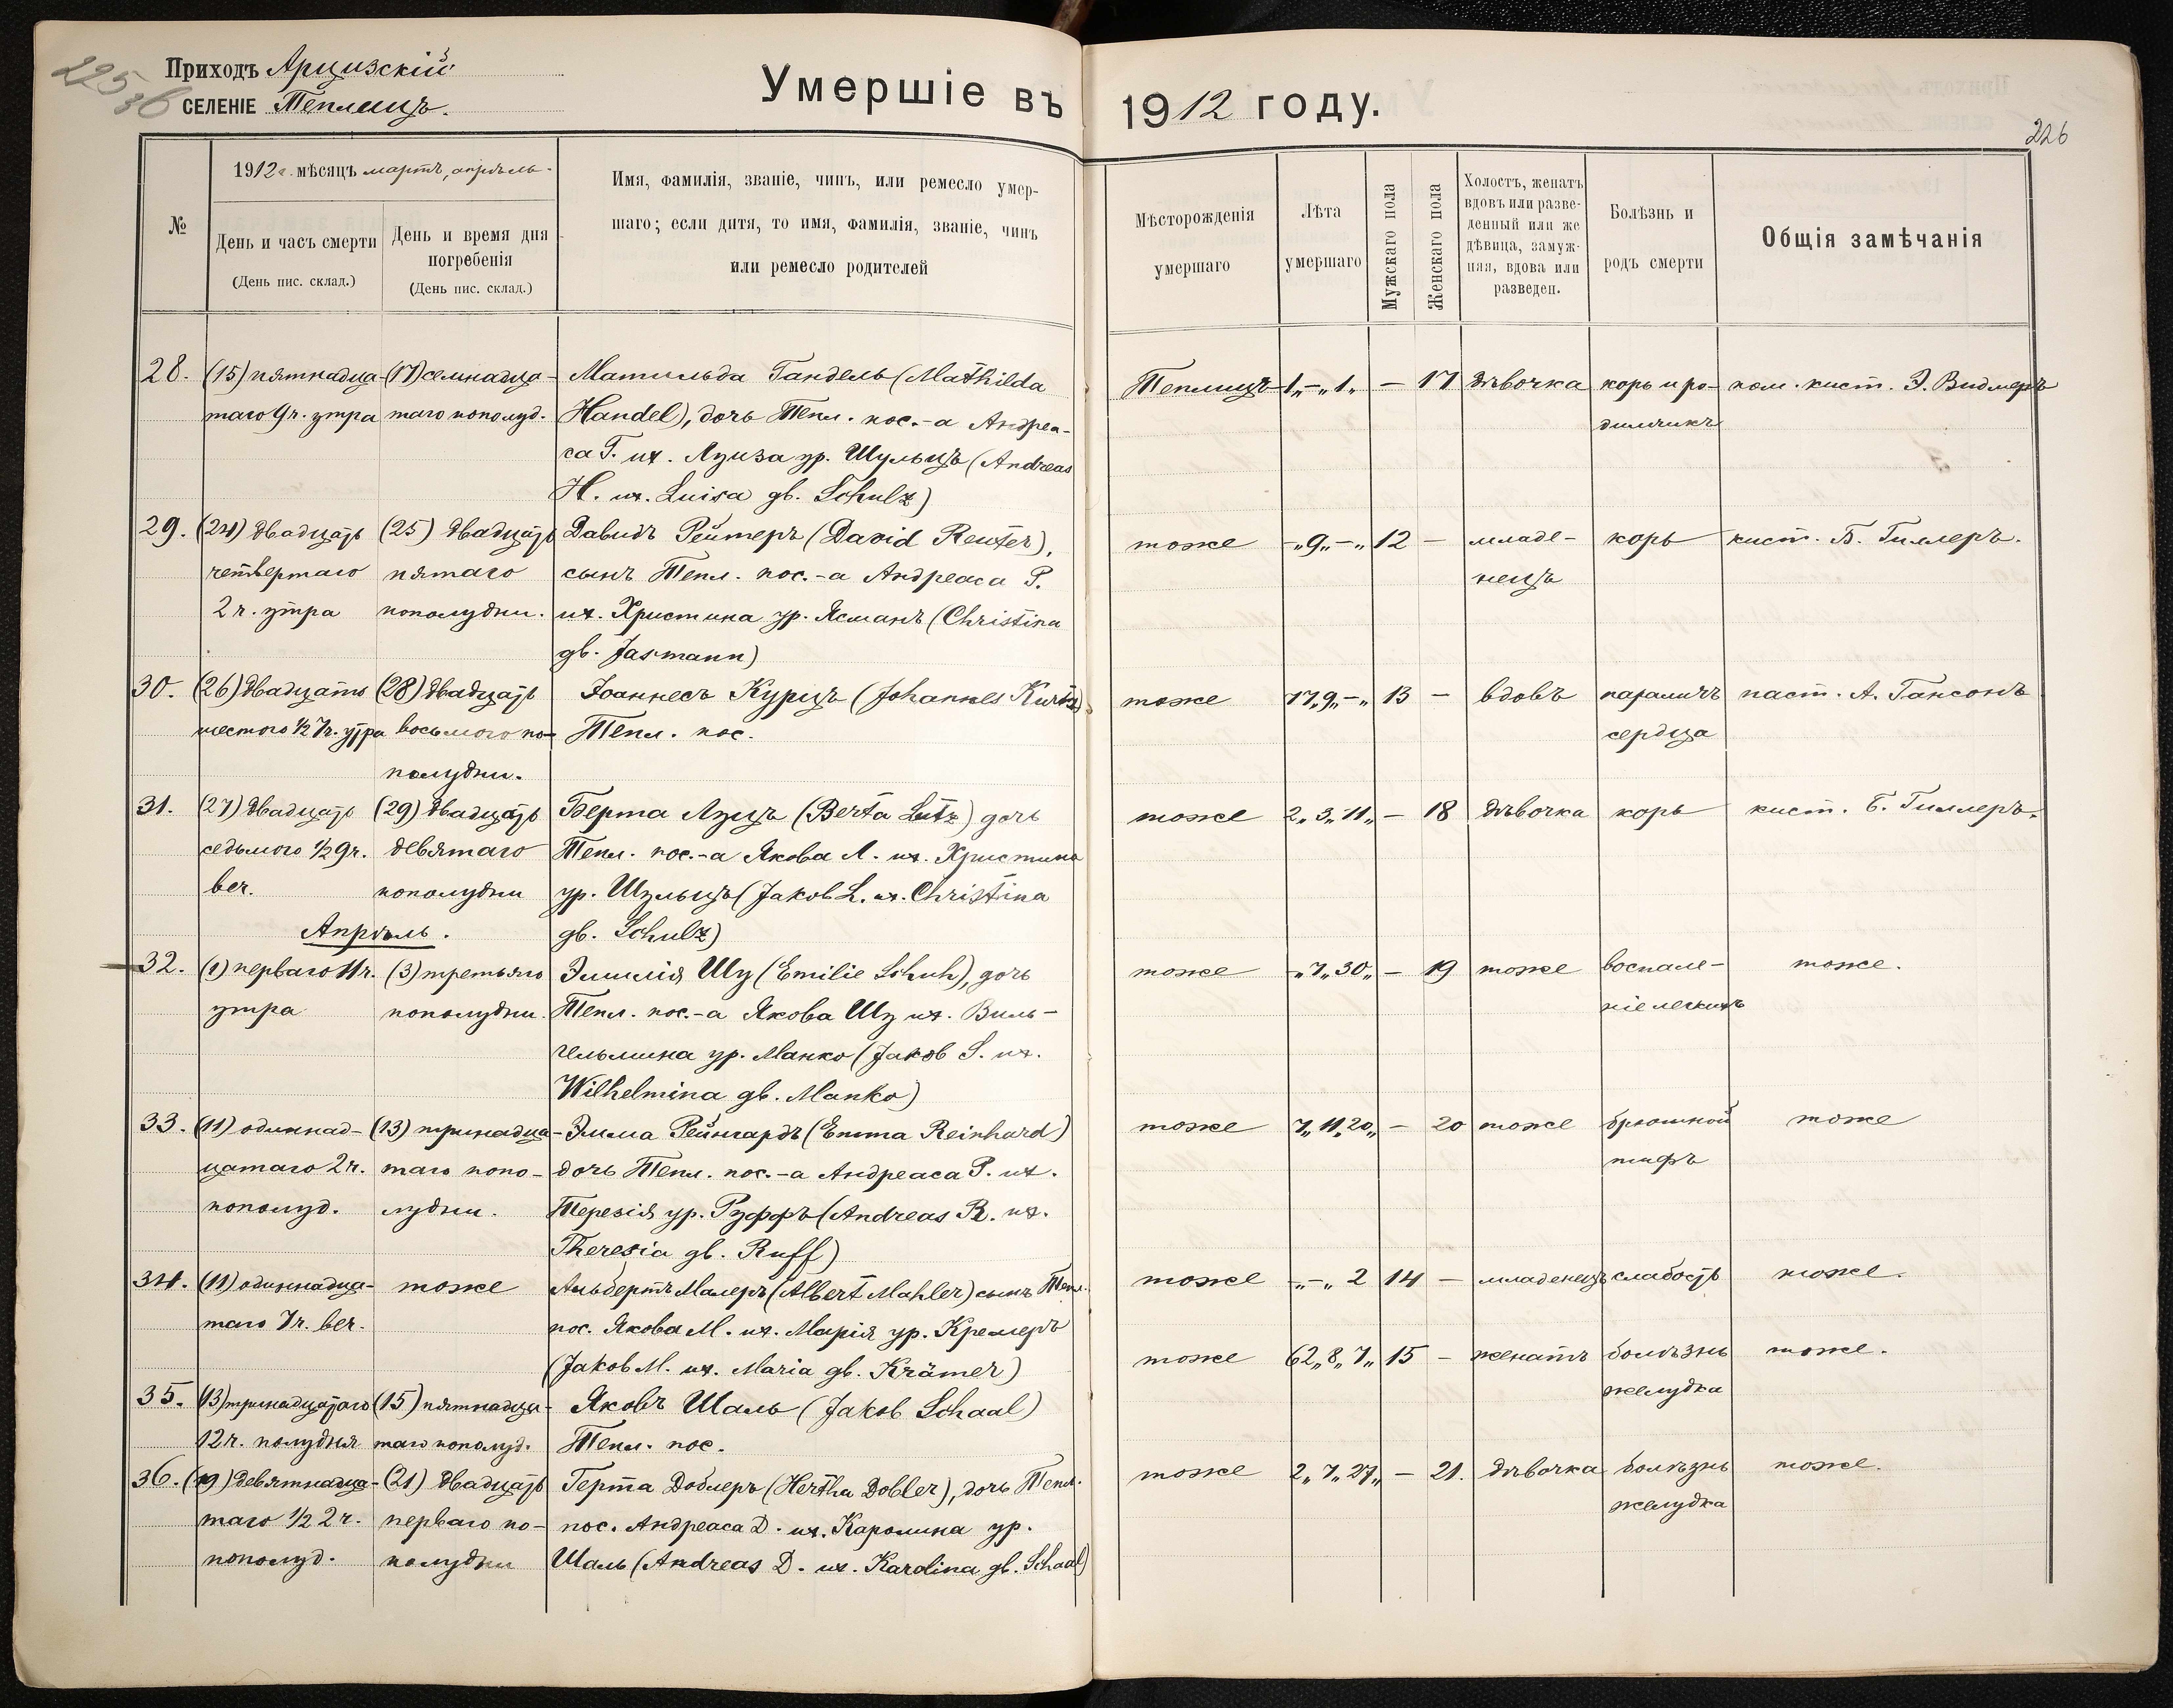 225
36
Приходъ Арцизскій
СЕЛЕНІЕ Теплицъ.
Умершіе въ 1912 году.
226
№
1912 г. мѣсяцъ мартъ, апрѣль.
День и часъ смерти
(День пис. склад.)
День и время дня
погребенія
(День пис. склад.)
Имя, фамилія, званіе, чинъ, или ремесло умер-
шаго; если дитя, то имя, фамилія, званіе, чинъ
или ремесло родителей
Мѣсторожденія
умершаго
Лѣта
умершаго
Мужскаго пола
Женскаго пола
Холостъ, женатъ
вдовъ или разве-
денный или же
дѣвица, замуж-
няя, вдова или
разведен.
Болѣзнь и
родъ смерти
Общія замѣчанія
28. (15) пятнадца- (17) семнадца- Матильда Гандель (Mathilda Теплицъ 1„-„1„ — 17 дѣвочка корь и ро- пом. кист. Э. Видмеръ
таго 9ч. утра таго пополуд. Handel), дочь Тепл. пос.-а Андреа- димчикъ
са Г. и ж. Луиза ур. Шульцъ (Andreas
H. и ж. Luisa gb. Schulz)
29. (24) двадцать (25) двадцать Давидъ Рейтеръ (David Reuter), тоже -„9„-„ 12 — младе- корь кист. Б. Гиллеръ.
четвертаго пятаго сынъ Тепл. пос.-а Андреаса Р. нецъ
2 ч. утра пополудни. и ж. Христина ур. Ясманъ (Christina
gb. Jasmann)
30. (26) двадцать (28) двадцать Іоаннесъ Курцъ (Johannes Kurtz) тоже 77„9„-„ 13 — вдовъ параличъ паст. А. Гансонъ
шестого ½ 7ч. утра восьмого по- Тепл. пос. сердца
полудни.
31. (27) двадцать (29) двадцать Берта Луцъ (Berta Lutz) дочь тоже 2„3„11„ — 18 дѣвочка корь кист. Б. Гиллеръ.
седьмого ½ 9ч. девятаго Тепл. пос.-а Якова Л. и ж. Христина
веч. пополудни ур. Шульцъ (Jakob L. и ж. Christina
Апрѣль. gb. Schulz)
32. (1) перваго 11ч. (3) третьяго Эмилія Шу (Emilie Schuh), дочь тоже -„7„30„ — 19 тоже воспале- тоже.
утра пополудни. Тепл. пос.-а Якова Шу и ж. Виль- ніе легкихъ
гельмина ур. Манко (Jakob S. и ж.
Wilhelmina gb. Manko)
33. (11) одиннад- (13) тринадца- Эмма Рейнгардъ (Emma Reinhard) тоже 7„11„20„ — 20 тоже брюшной тоже
цатаго 2ч. таго попо- дочь Тепл. пос.-а Андреаса Р. и ж. тифъ
пополуд. лудни. Терезія ур. Руффъ (Andreas R. и ж.
Theresia gb. Ruff)
34. (11) одиннадца- тоже Альбертъ Малеръ (Albert Mahler) сынъ Тепл. тоже -„-„2 14 — младенецъ слабость тоже.
таго 7ч. веч. пос. Якова М. и ж. Марія ур. Кремеръ
(Jakob M. и ж. Maria gb. Krämer)
35. (13) тринадцатаго (15) пятнадца- Яковъ Шаль (Jakob Schaal) тоже 62„8„7„ 15 — женатъ болѣзнь тоже.
12 ч. полудня таго пополуд. Тепл. пос. желудка
36. (19) девятнадца- (21) двадцать Герта Доблеръ (Hertha Dobler), дочь Тепл. тоже 2„7„27„ — 21. дѣвочка болѣзнь тоже.
таго ½ 2ч. перваго по- пос. Андреаса Д. и ж. Каролина ур. желудка
пополуд. полудни Шаль (Andreas D. и ж. Karolina gb. Schaal)